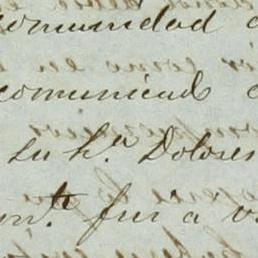 comunidad
comunicad
su h.ª Dolores
fui a